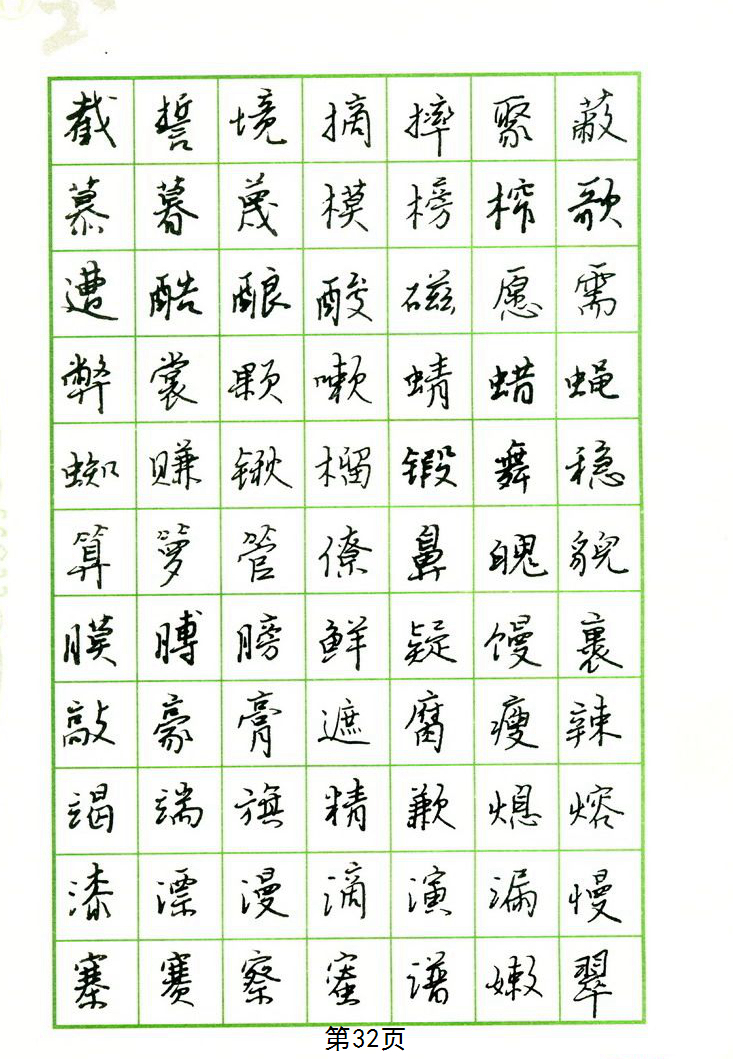 截誓境摘摔聚蔽
慕暮蔑模榜榨歌
遭酷酿酸磁愿需
弊裳颗嗽蜻蜡蝇
蜘赚锹榴锻舞稳
算箩管僚鼻魄貌
膜膊膀鲜疑馒裹
敲豪膏遮腐瘦辣
竭端旗精歉熄熔
漆漂漫滴演漏慢
寨赛察蜜谱嫩翠
第32页